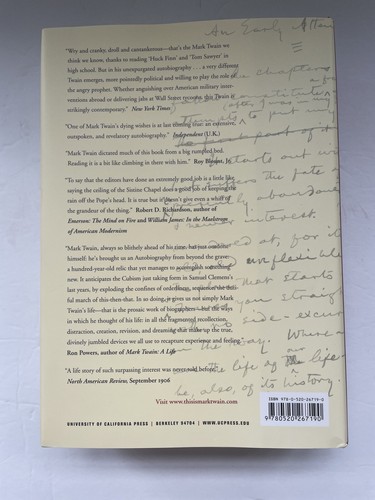 An Early Attem
"Wry and cranky, droll and cantankerous—that's the Mark Twain we
think we know, thanks to reading 'Huck Finn' and 'Tom Sawyer' in
high school. But in his unexpurgated autobiography . . . a very different
Twain emerges, more pointedly political and willing to play the role of
the angry prophet. Whether anguishing over American military inter-
ventions abroad or delivering jabs at Wall Street tycoons, this Twain is
strikingly contemporary." New York Times
"One of Mark Twain's dying wishes is at last coming true: an extensive,
outspoken, and revelatory autobiography." Independent (U.K.)
"Mark Twain dictated much of this book from a big rumpled bed.
Reading it is a bit like climbing in there with him." Roy Blount, Jr.
"To say that the editors have done an extremely good job is a little like
saying the ceiling of the Sistine Chapel does a good job of keeping the
rain off the Pope's head. It is true but it doesn't give even a whiff of
the grandeur of the thing." Robert D. Richardson, author of
Emerson: The Mind on Fire and William James: In the Maelstrom
of American Modernism
"Mark Twain, always so blithely ahead of his time, has just outdone
himself: he's brought us an Autobiography from beyond the grave—
a hundred-year-old relic that yet manages to accomplish something
new. It anticipates the Cubism just taking form in Samuel Clemens's
last years, by exploding the confines of orderliness, sequence, the dutiful
march of this-then-that. In so doing, it gives us not simply Mark
Twain's life—that is the prosaic work of biographers—but the ways
in which he thought of his life: in all the fragmented recollection,
distraction, creation, revision, and dreaming that make up the true,
divinely jumbled devices we all use to recapture experience and feeling."
Ron Powers, author of Mark Twain: A Life
"A life story of such surpassing interest was never told before."
North American Review, September 1906
Visit www.thisismarktwain.com
UNIVERSITY OF CALIFORNIA PRESS | BERKELEY 94704 | WWW.UCPRESS.EDU
chapters
to put my
starts out
abandone
interest.
inflexible
that starts
you straig
side-excur
the way. Where
the life of life
he, also, of its history.
ISBN 978-0-520-26719-0
9 780520 267190